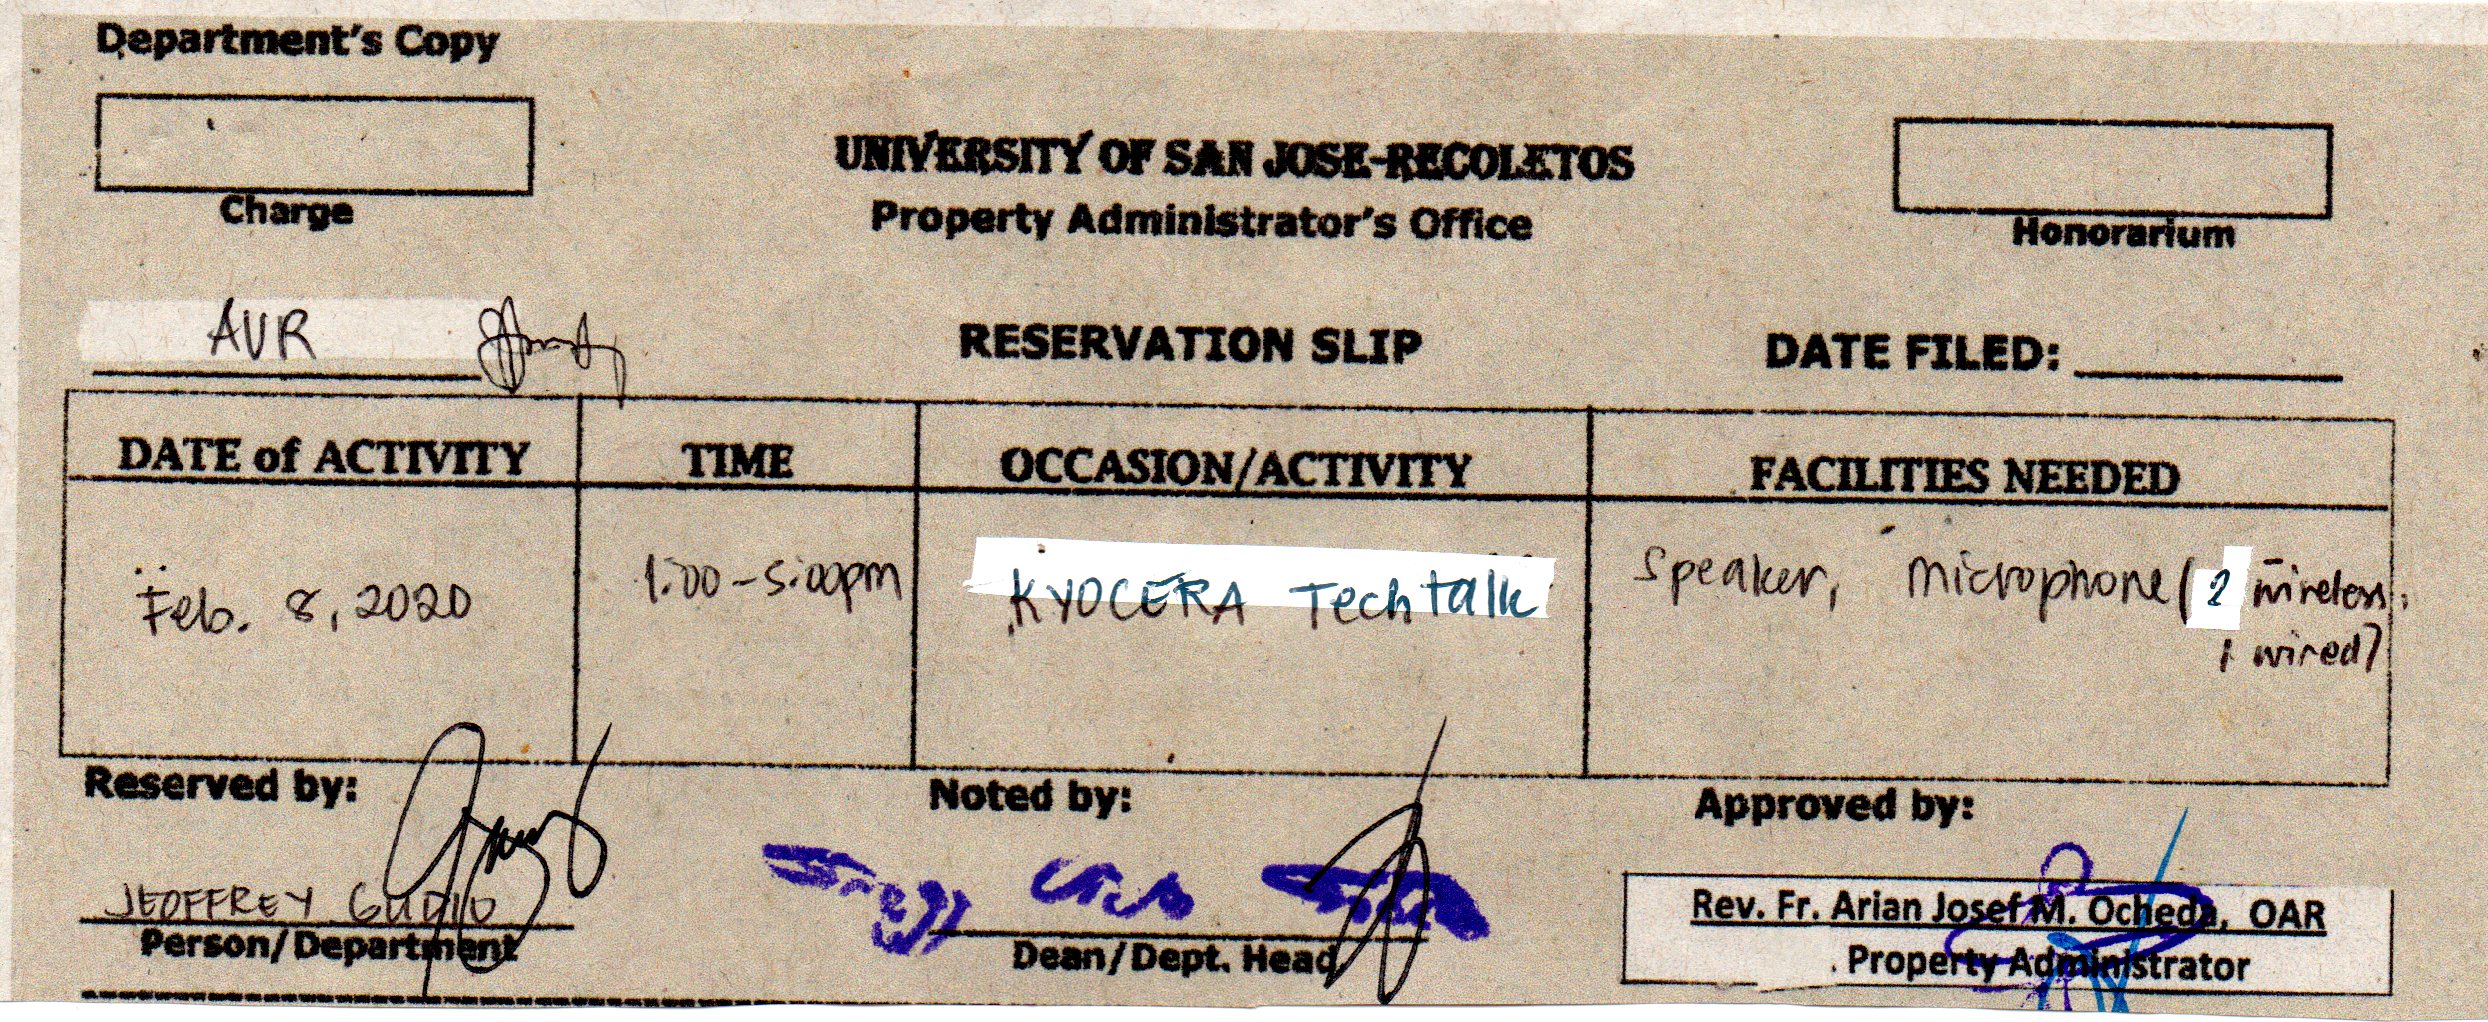 Department's Copy
Charge
UNIVERSITY OF SAN JOSE-RECOLETOS
Property Administrator's Office
Honorarium
AVR
RESERVATION SLIP
DATE FILED:
DATE of ACTIVITY TIME OCCASION/ACTIVITY FACILITIES NEEDED
Feb. 8, 2020 1:00-5:00pm KYOCERA Tech talk Speaker, Microphone (2 wireless,
1 wired)
Reserved by: Noted by: Approved by:
JEOFFREY GUDIO
Person/Department
Dean/Dept. Head
Rev. Fr. Arian Josef M. Ocheda, OAR
Property Administrator